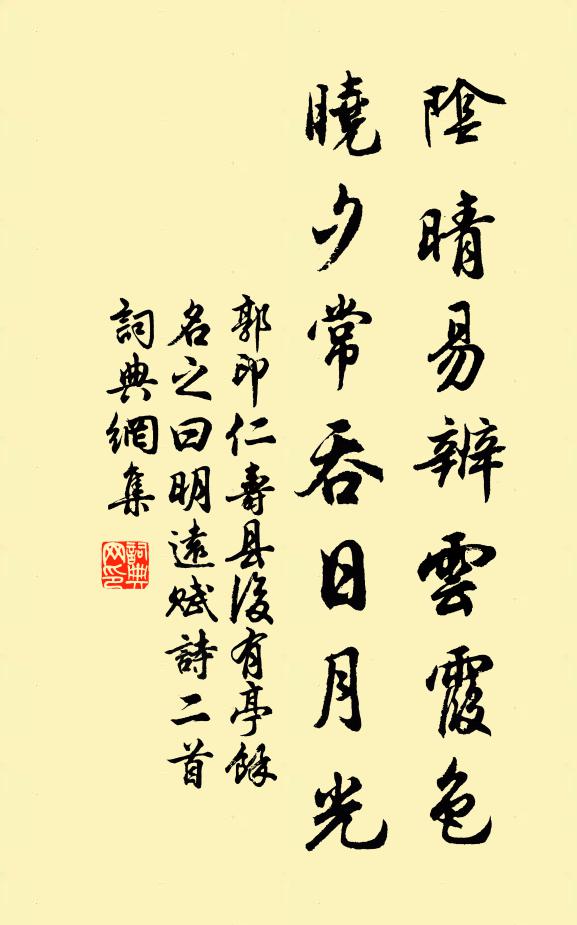 陰晴易辨雲霞色
曉夕常吞日月光
郭印仁壽县後有亭餘
名之曰明遠賦詩二首
詞典網集
詞典网印